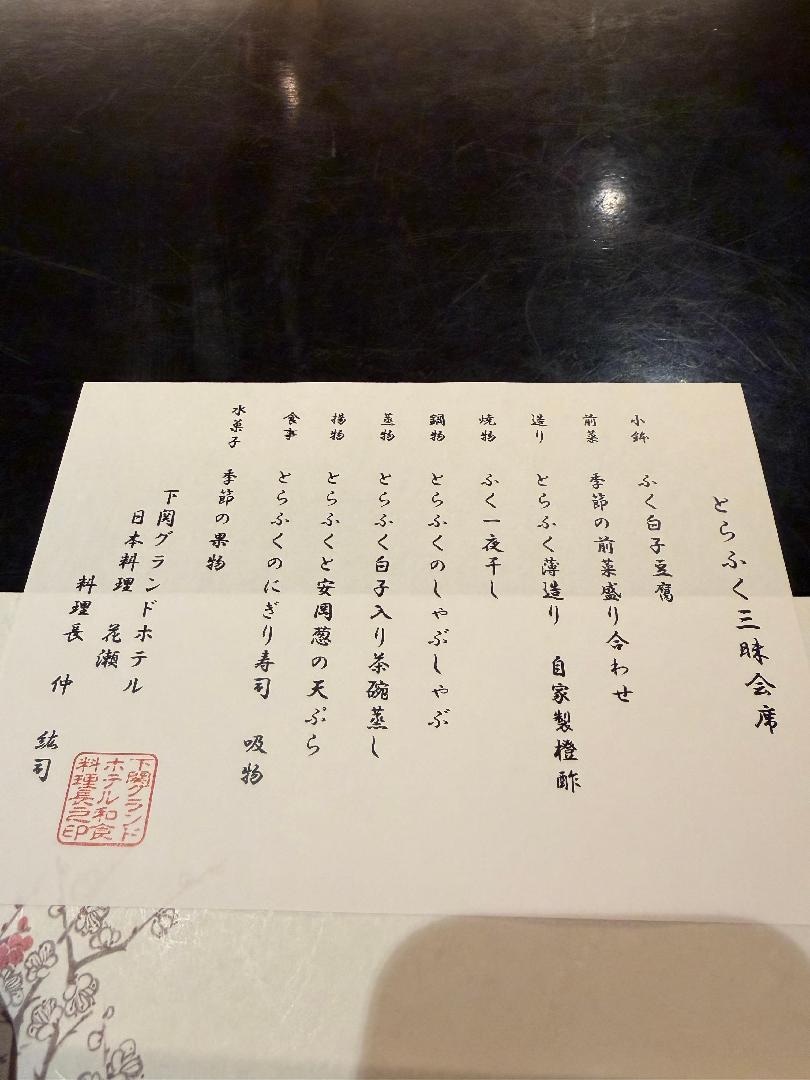 とらふく三昧会席
小鉢 ふく白子豆腐
前菜 季節の前菜盛り合わせ
造り とらふく薄造り 自家製橙酢
焼物 ふく一夜干し
鍋物 とらふくのしゃぶしゃぶ
蒸物 とらふく白子入り茶碗蒸し
揚物 とらふくと安岡葱の天ぷら
食事 とらふくのにぎり寿司 吸物
水菓子 季節の果物
下関グランドホテル
日本料理 花瀬
料理長 仲 紘司
下関グランド
ホテル和食
料理長之印